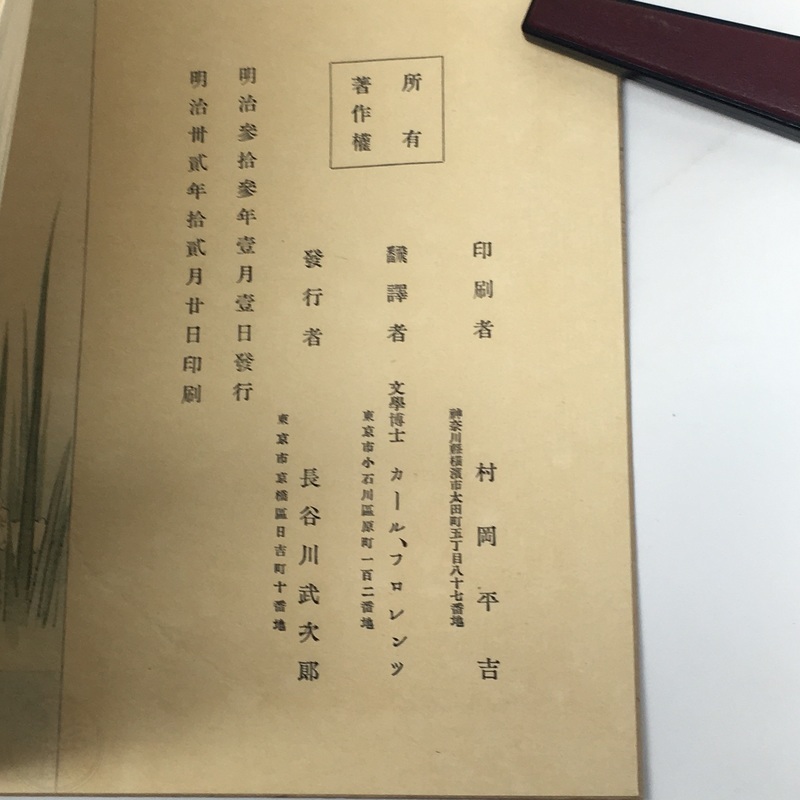 所有
著作權
印刷者 村岡平吉
神奈川縣橫濱市太田町五丁目八十七番地
飜譯者 文學博士 カール、フロレンツ
東京市小石川區原町一百二番地
發行者 長谷川武次郎
東京市京橋區日吉町十番地
明治參拾參年壹月壹日發行
明治卅貳年拾貳月廿日印刷